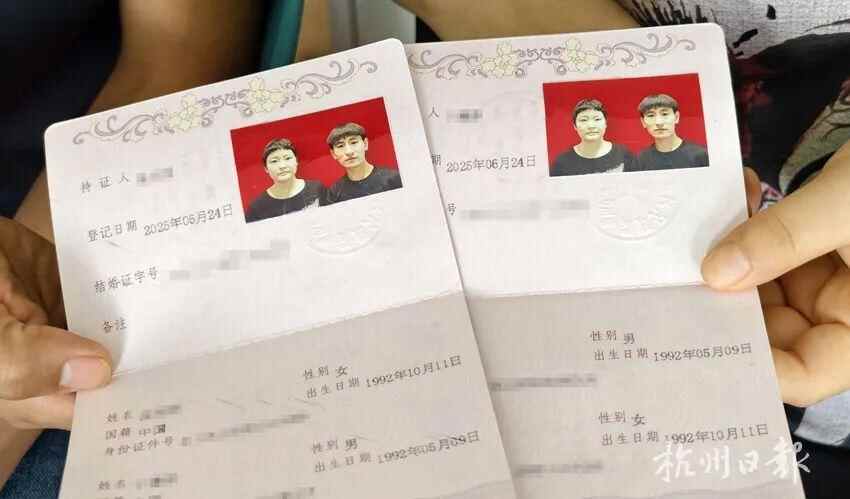 持证人
登记日期 2025年06月24日
结婚证字号
备注
姓名 性别 女
国籍 中国 出生日期 1992年10月11日
身份证件号
姓名 性别 男
出生日期 1992年05月09日
人
2025年06月24日
号
性别 男
出生日期 1992年05月09日
性别 女
出生日期 1992年10月11日
杭州日报